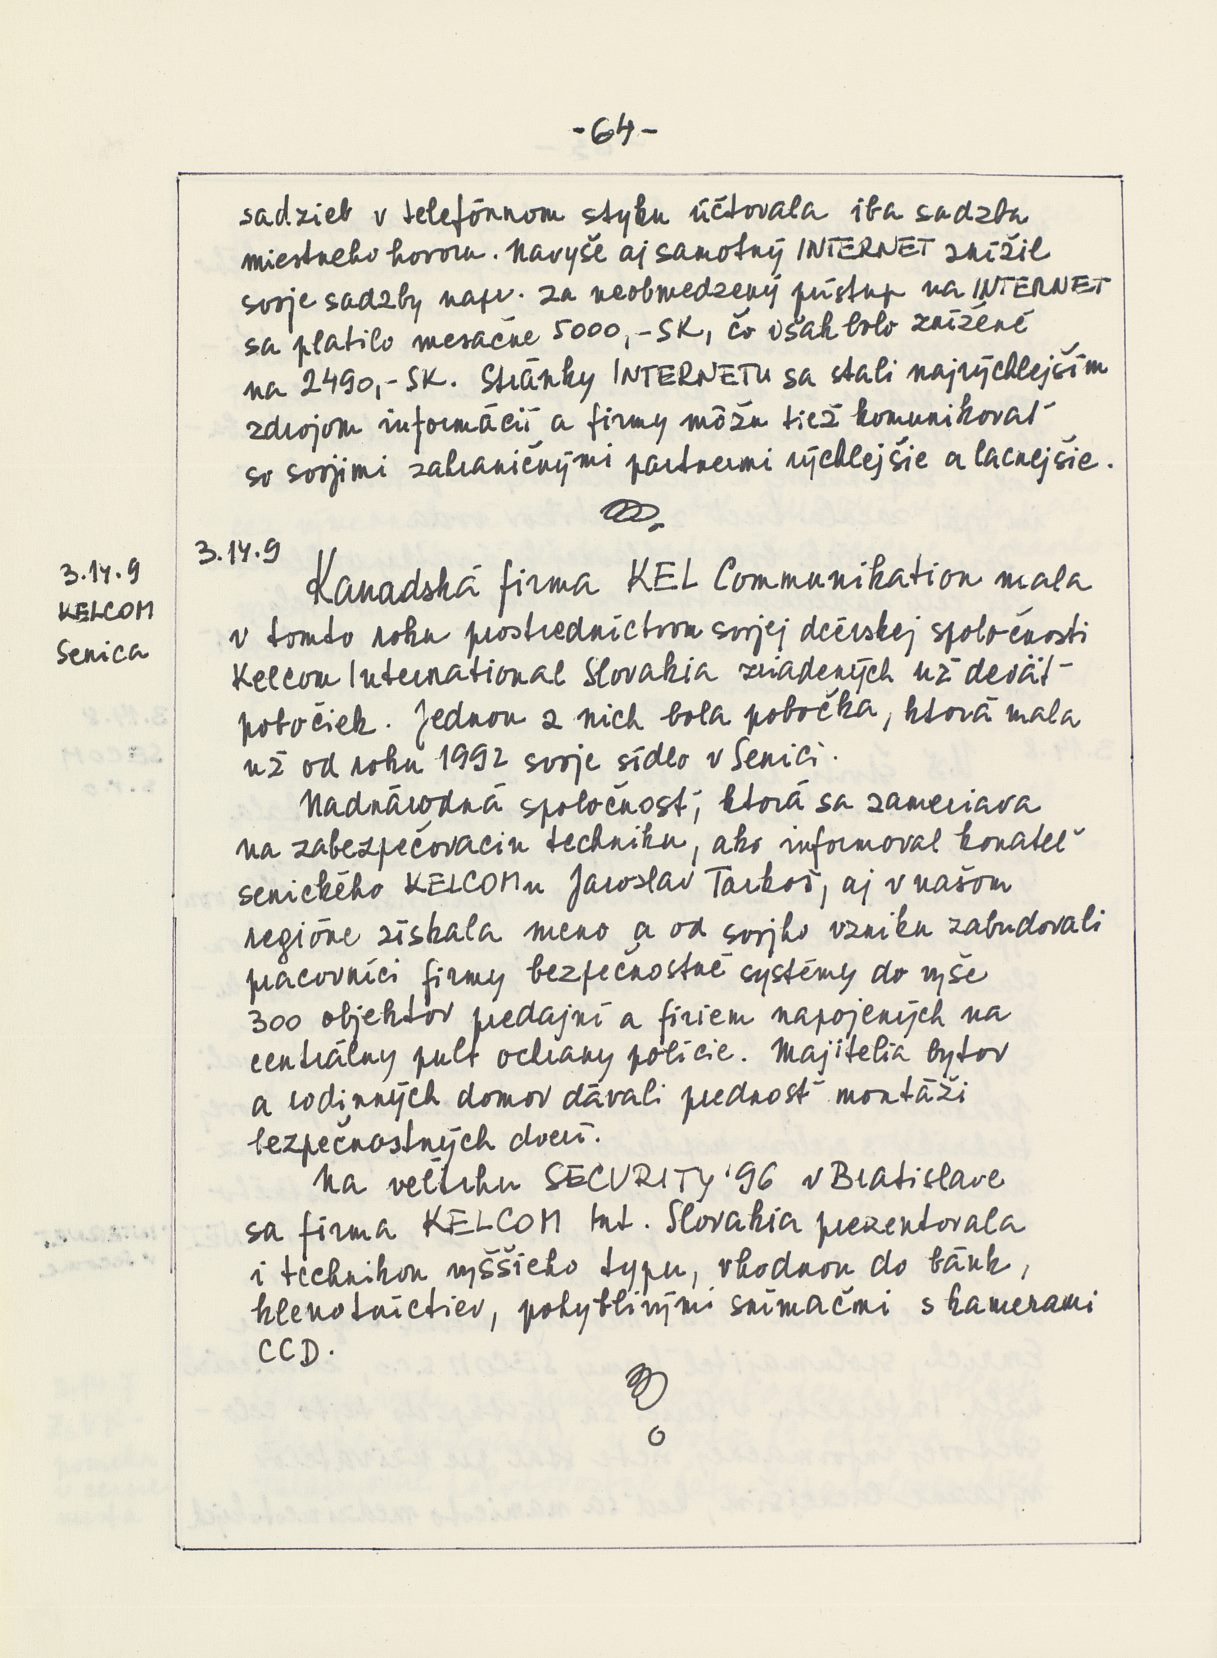 -64-
sadzieb v telefónnom styku účtovala iba sadzba
miestneho hovoru. Navyše aj samotný INTERNET znížil
svoje sadzby napr. za neobmedzený prístup na INTERNET
sa platilo mesačne 5000,-SK, čo však bolo znížené
na 2490,-SK. Stránky INTERNETU sa stali najrýchlejším
zdrojom informácií a firmy môžu tiež komunikovať
so svojimi zahraničnými partnermi rýchlejšie a lacnejšie.
3.14.9
3.14.9
KELCOM
Senica
Kanadská firma KEL Communikation mala
v tomto roku prostredníctvom svojej dcérskej spoločnosti
Kelcom International Slovakia zriadených už deväť
pobočiek. Jednou z nich bola pobočka, ktorá mala
už od roku 1992 svoje sídlo v Senici.
Nadnárodná spoločnosť, ktorá sa zameriava
na zabezpečovaciu techniku, ako informoval konateľ
senického KELCOMu Jaroslav Tarkoš, aj v našom
regióne získala meno a od svojho vzniku zabudovali
pracovníci firmy bezpečnostné systémy do vyše
300 objektov predajní a firiem napojených na
centrálny pult ochrany polície. Majitelia bytov
a rodinných domov dávali prednosť montáži
bezpečnostných dverí.
Na veľtrhu SECURITY '96 v Bratislave
sa firma KELCOM Int. Slovakia prezentovala
i technikou vyššieho typu, vhodnou do bánk,
klenotníctiev, pohyblivými snímačmi s kamerami
CCD.